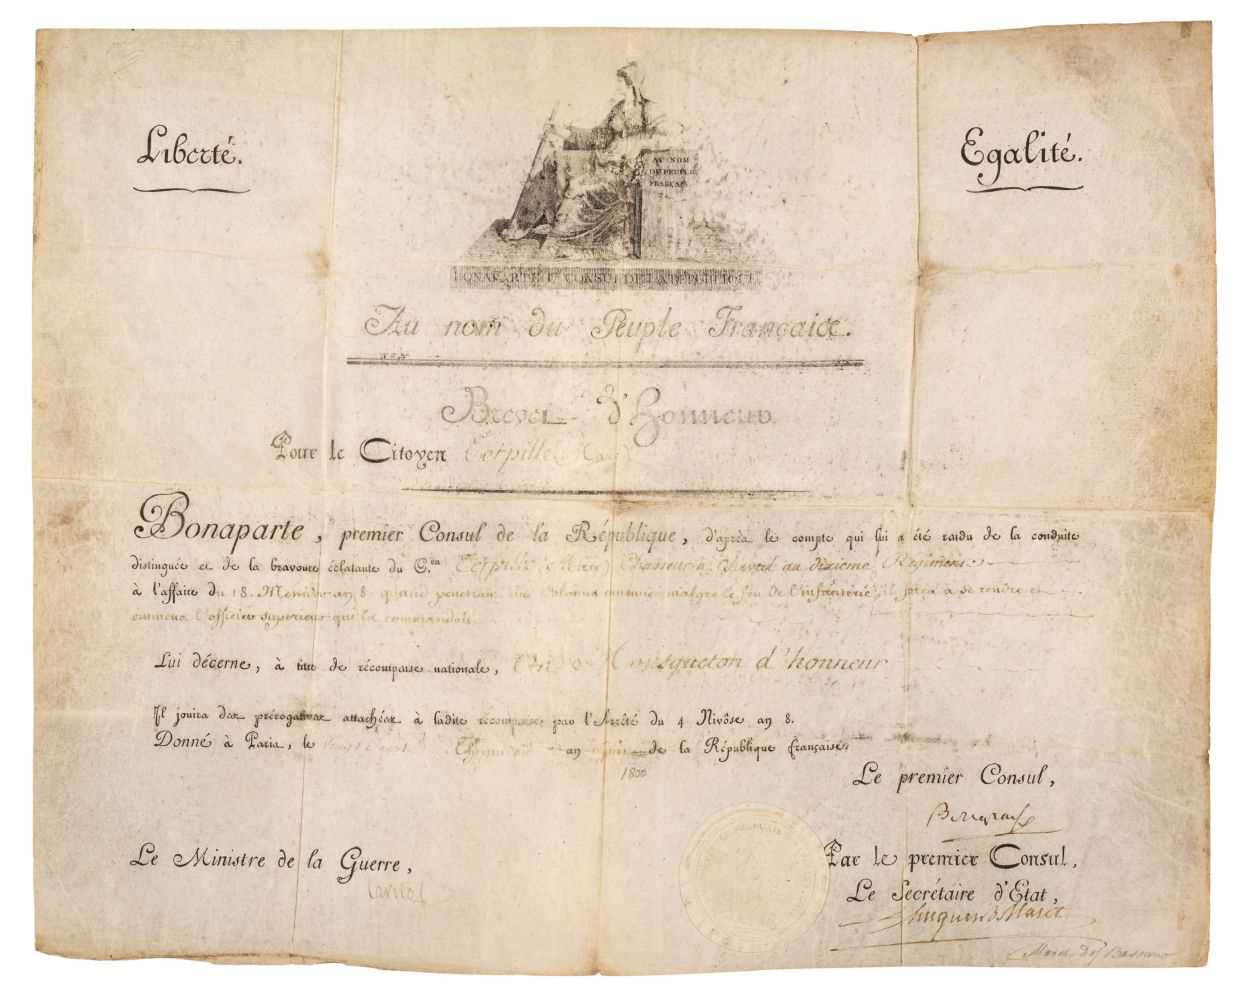 Liberté.
Egalité.
AU NOM
DU PEUPLE
FRANÇAIS
BONAPARTE 1er CONSUL DE LA REPUBLIQUE
Au nom du Peuple Français.
Brevet d'Honneur
Pour le Citoyen Torpille
Bonaparte, premier Consul de la République, d'après le compte qui lui a été rendu de la conduite
distinguée et de la bravoure éclatante du C.en Torpille Chasseur à Cheval au dixieme Régiment
à l'affaire du 18 Messidor an 8 malgré le feu de l'infanterie, il força à se rendre et
emmena l'officier superieur qui la commandait.
Lui décerne, à titre de récompense nationale, Un Mousqueton d'honneur
Il jouira des prérogatives attachées à ladite récompense par l'Arrêté du 4 Nivôse an 8.
Donné à Paris, le an de la République française.
1800
Le premier Consul,
Bonaparte
Le Ministre de la Guerre,
Carnot
Par le premier Consul,
Le Secrétaire d'Etat,
Hugues B Maret
Maret Bassano